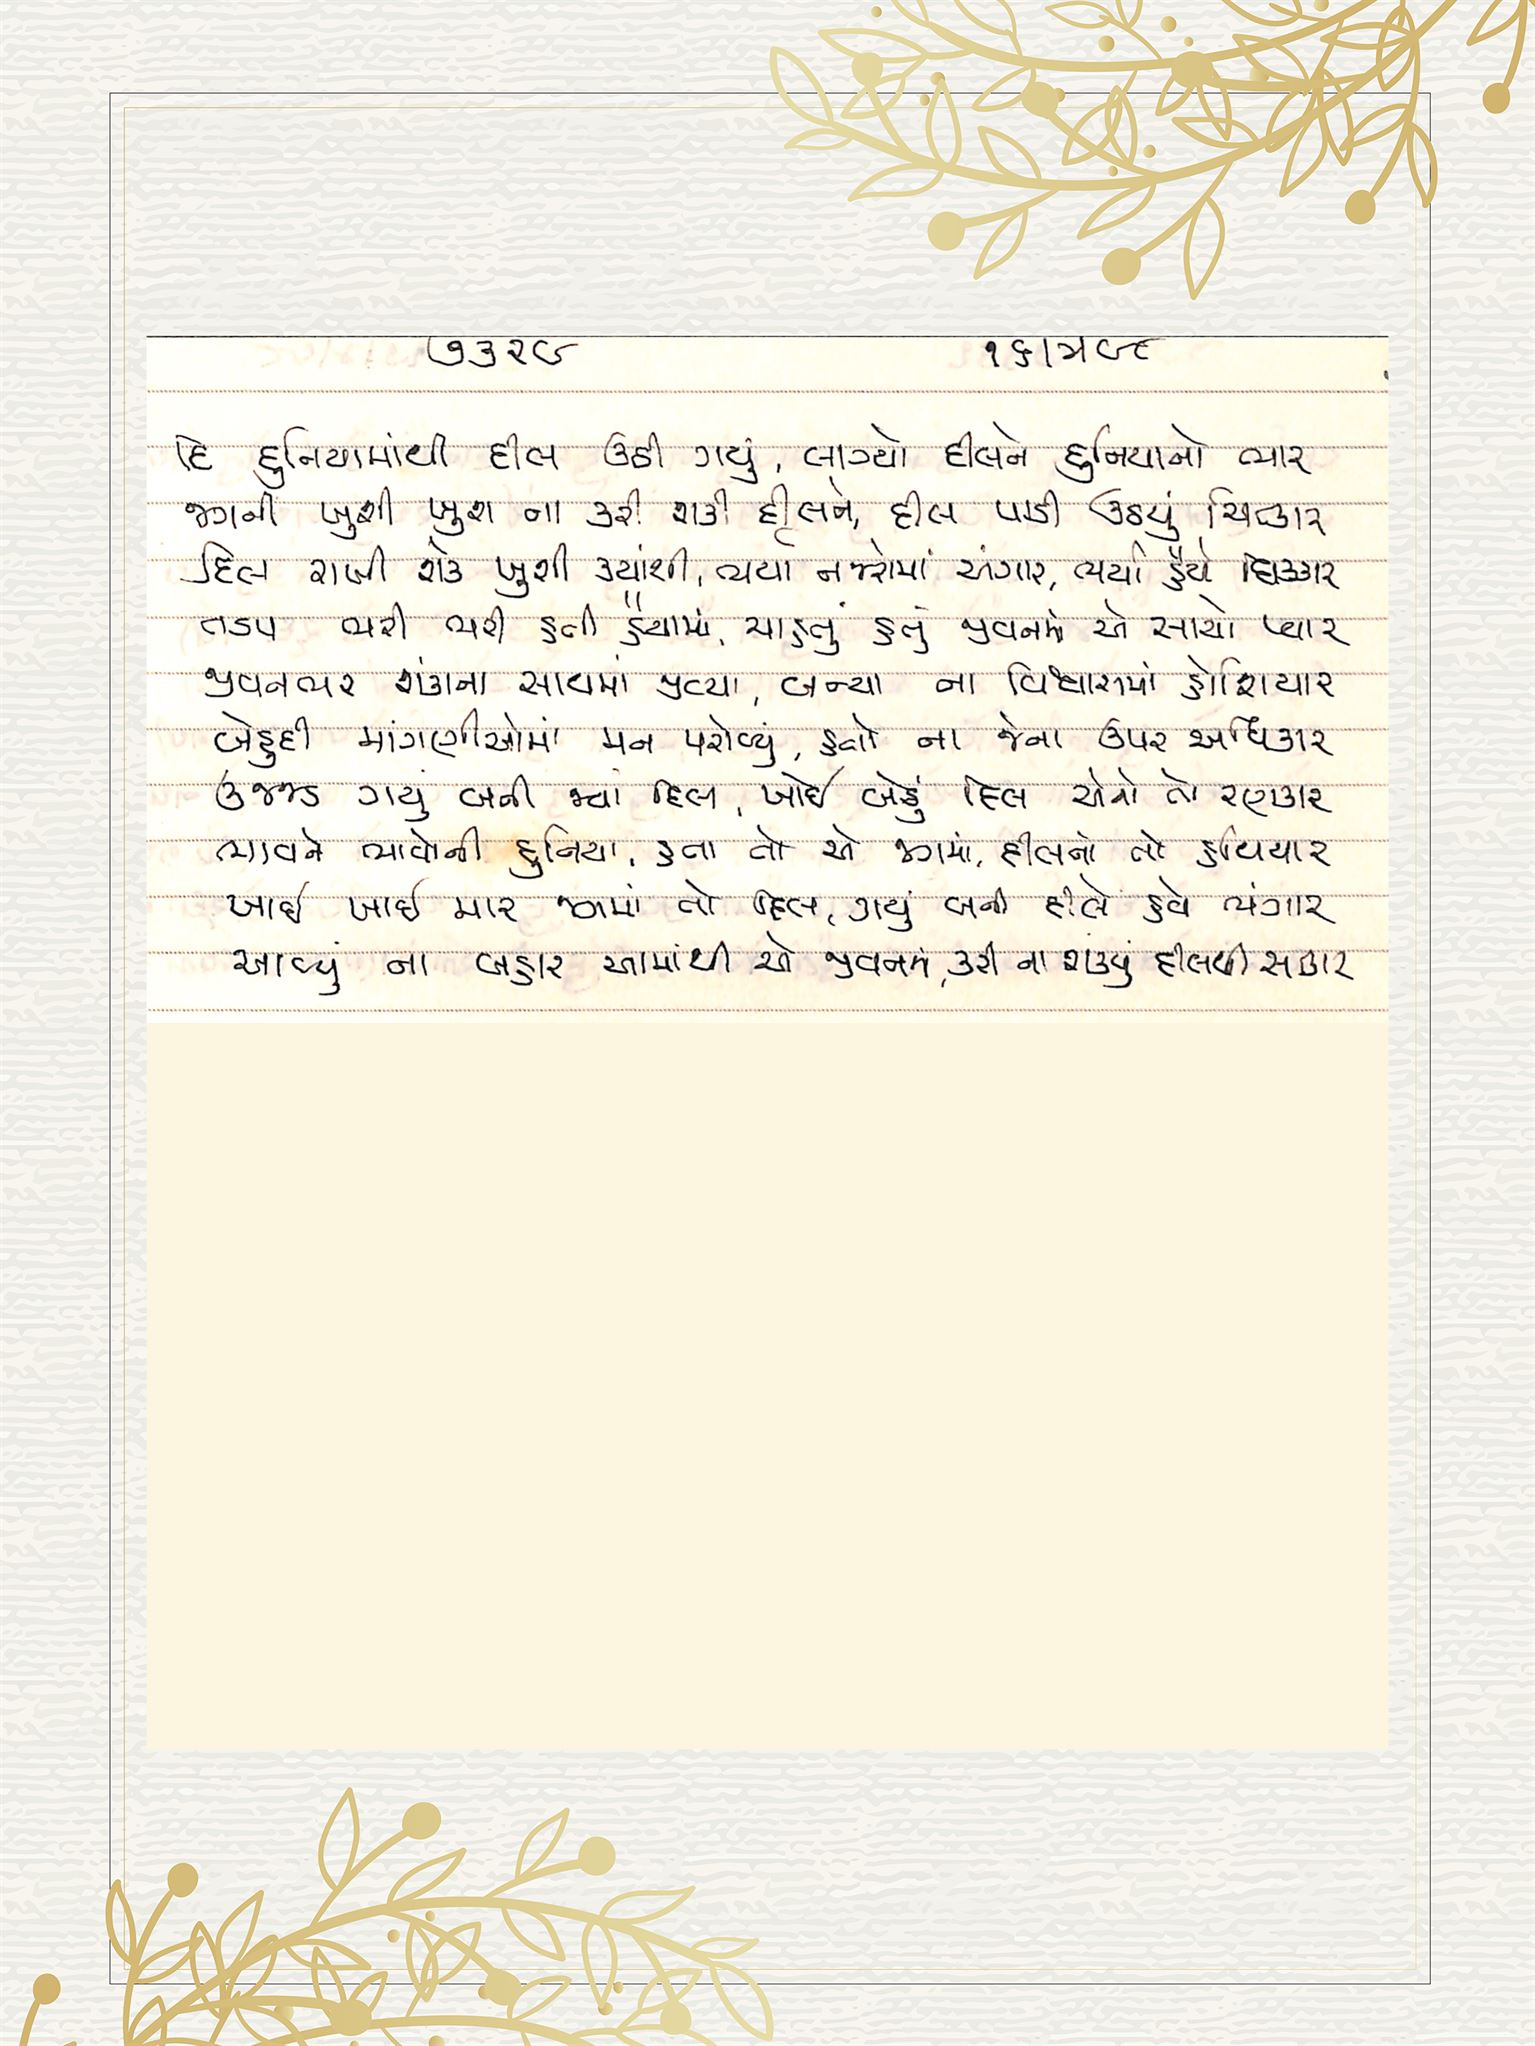 ૭૩૨૯ ૧૬।૫૯૮
દિ દુનિયામાંથી દીલ ઉઠી ગયું, લાગ્યો દીલને દુનિયાનો ભાર
જગની ખુશી ખુશ ના કરી શકી દીલને, દીલ પાડી ઉઠયું ચિત્કાર
દિલ રાખી શકે ખુશી ક્યાંથી, ભર્યા નજરોમાં અંગાર, ભર્યા હૈયે ધિક્કાર
તડપ ભરી ભરી હતી હૈયામાં, ચાહતું હતું જીવનમાં એ સાચો પ્યાર
જીવનભર શંકાના સાથમાં જીવ્યા, બન્યા ના વિશ્વાસમાં હોશિયાર
બેહુદી માંગણીઓમાં મન પરોવ્યું, હતો ના જેના ઉપર અધિકાર
ઉજ્જડ ગયું બની જ્યાં દિલ, ખોઈ બેઠું દિલ એનો તો રણકાર
ભાવને ભાવોની દુનિયા, હતા તો એ જગમાં, દીલનો તો હથિયાર
ખાઈ ખાઈ માર જગમાં તો દિલ, ગયું બની દીલે હવે ભંગાર
આવ્યું ના બહાર આમાંથી એ જીવનમાં, કરી ના શક્યું દીલથી સહકાર